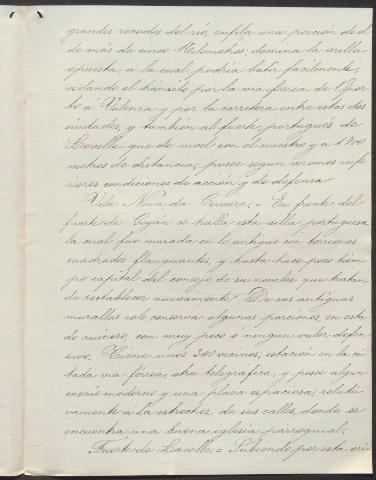 grandes recodos del rio, enfila una porción de el
de más de cinco kilometros; domina la orilla
opuesta, a la cual podría batir facilmente,
vedando el tránsito por la via ferrea de Opor
to a Valenza y por la carretera entre estas dos
ciudades, y tambien al fuerte portugués de
Lovelle, que de nivel con el nuestro y a 1700
metros de distancia, posee segun veremos infe
riores condiciones de acción y de defensa
Vila Nova da Cerveira.= En frente del
fuerte de Goyán se halla esta villa portuguesa
la cual fué murada en lo antiguo con torreones
cuadrados flanqueantes, y hasta hace poco tiem
po capital del consejo de su nombre que tratan
de restablecer nuevamente. De sus antiguas
murallas solo conserva algunas porciones en esta
do ruinoso, con muy poco ó ningun valor defen
sivo. Cuenta unos 340 vecinos; estación en la ci
tada via férrea, otra telegrafica, y posee algun
caserio moderno y una plaza espaciosa, relati
vamente a la estrechez de sus calles, donde se
encuentra una buena iglesia parroquial.
Fuerte de Lovelle.= Subiendo por esta ori